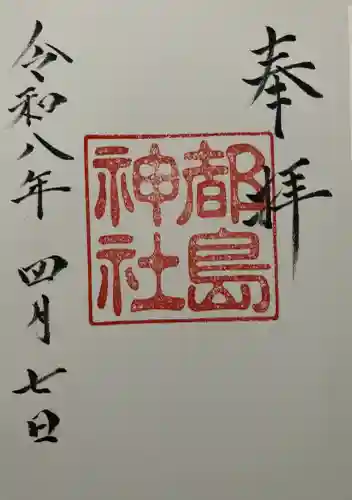 奉拝
都島
神社
令和八年 四月 七日